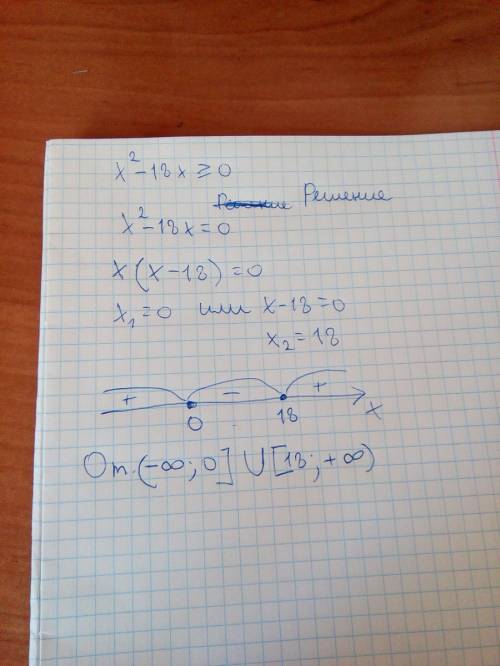 x² - 18x ≥ 0
Решение
x² - 18x = 0
x(x - 18) = 0
x₁ = 0 или x - 18 = 0
x₂ = 18
+ - +
0 18 x
От. (-∞; 0] ∪ [18; +∞)